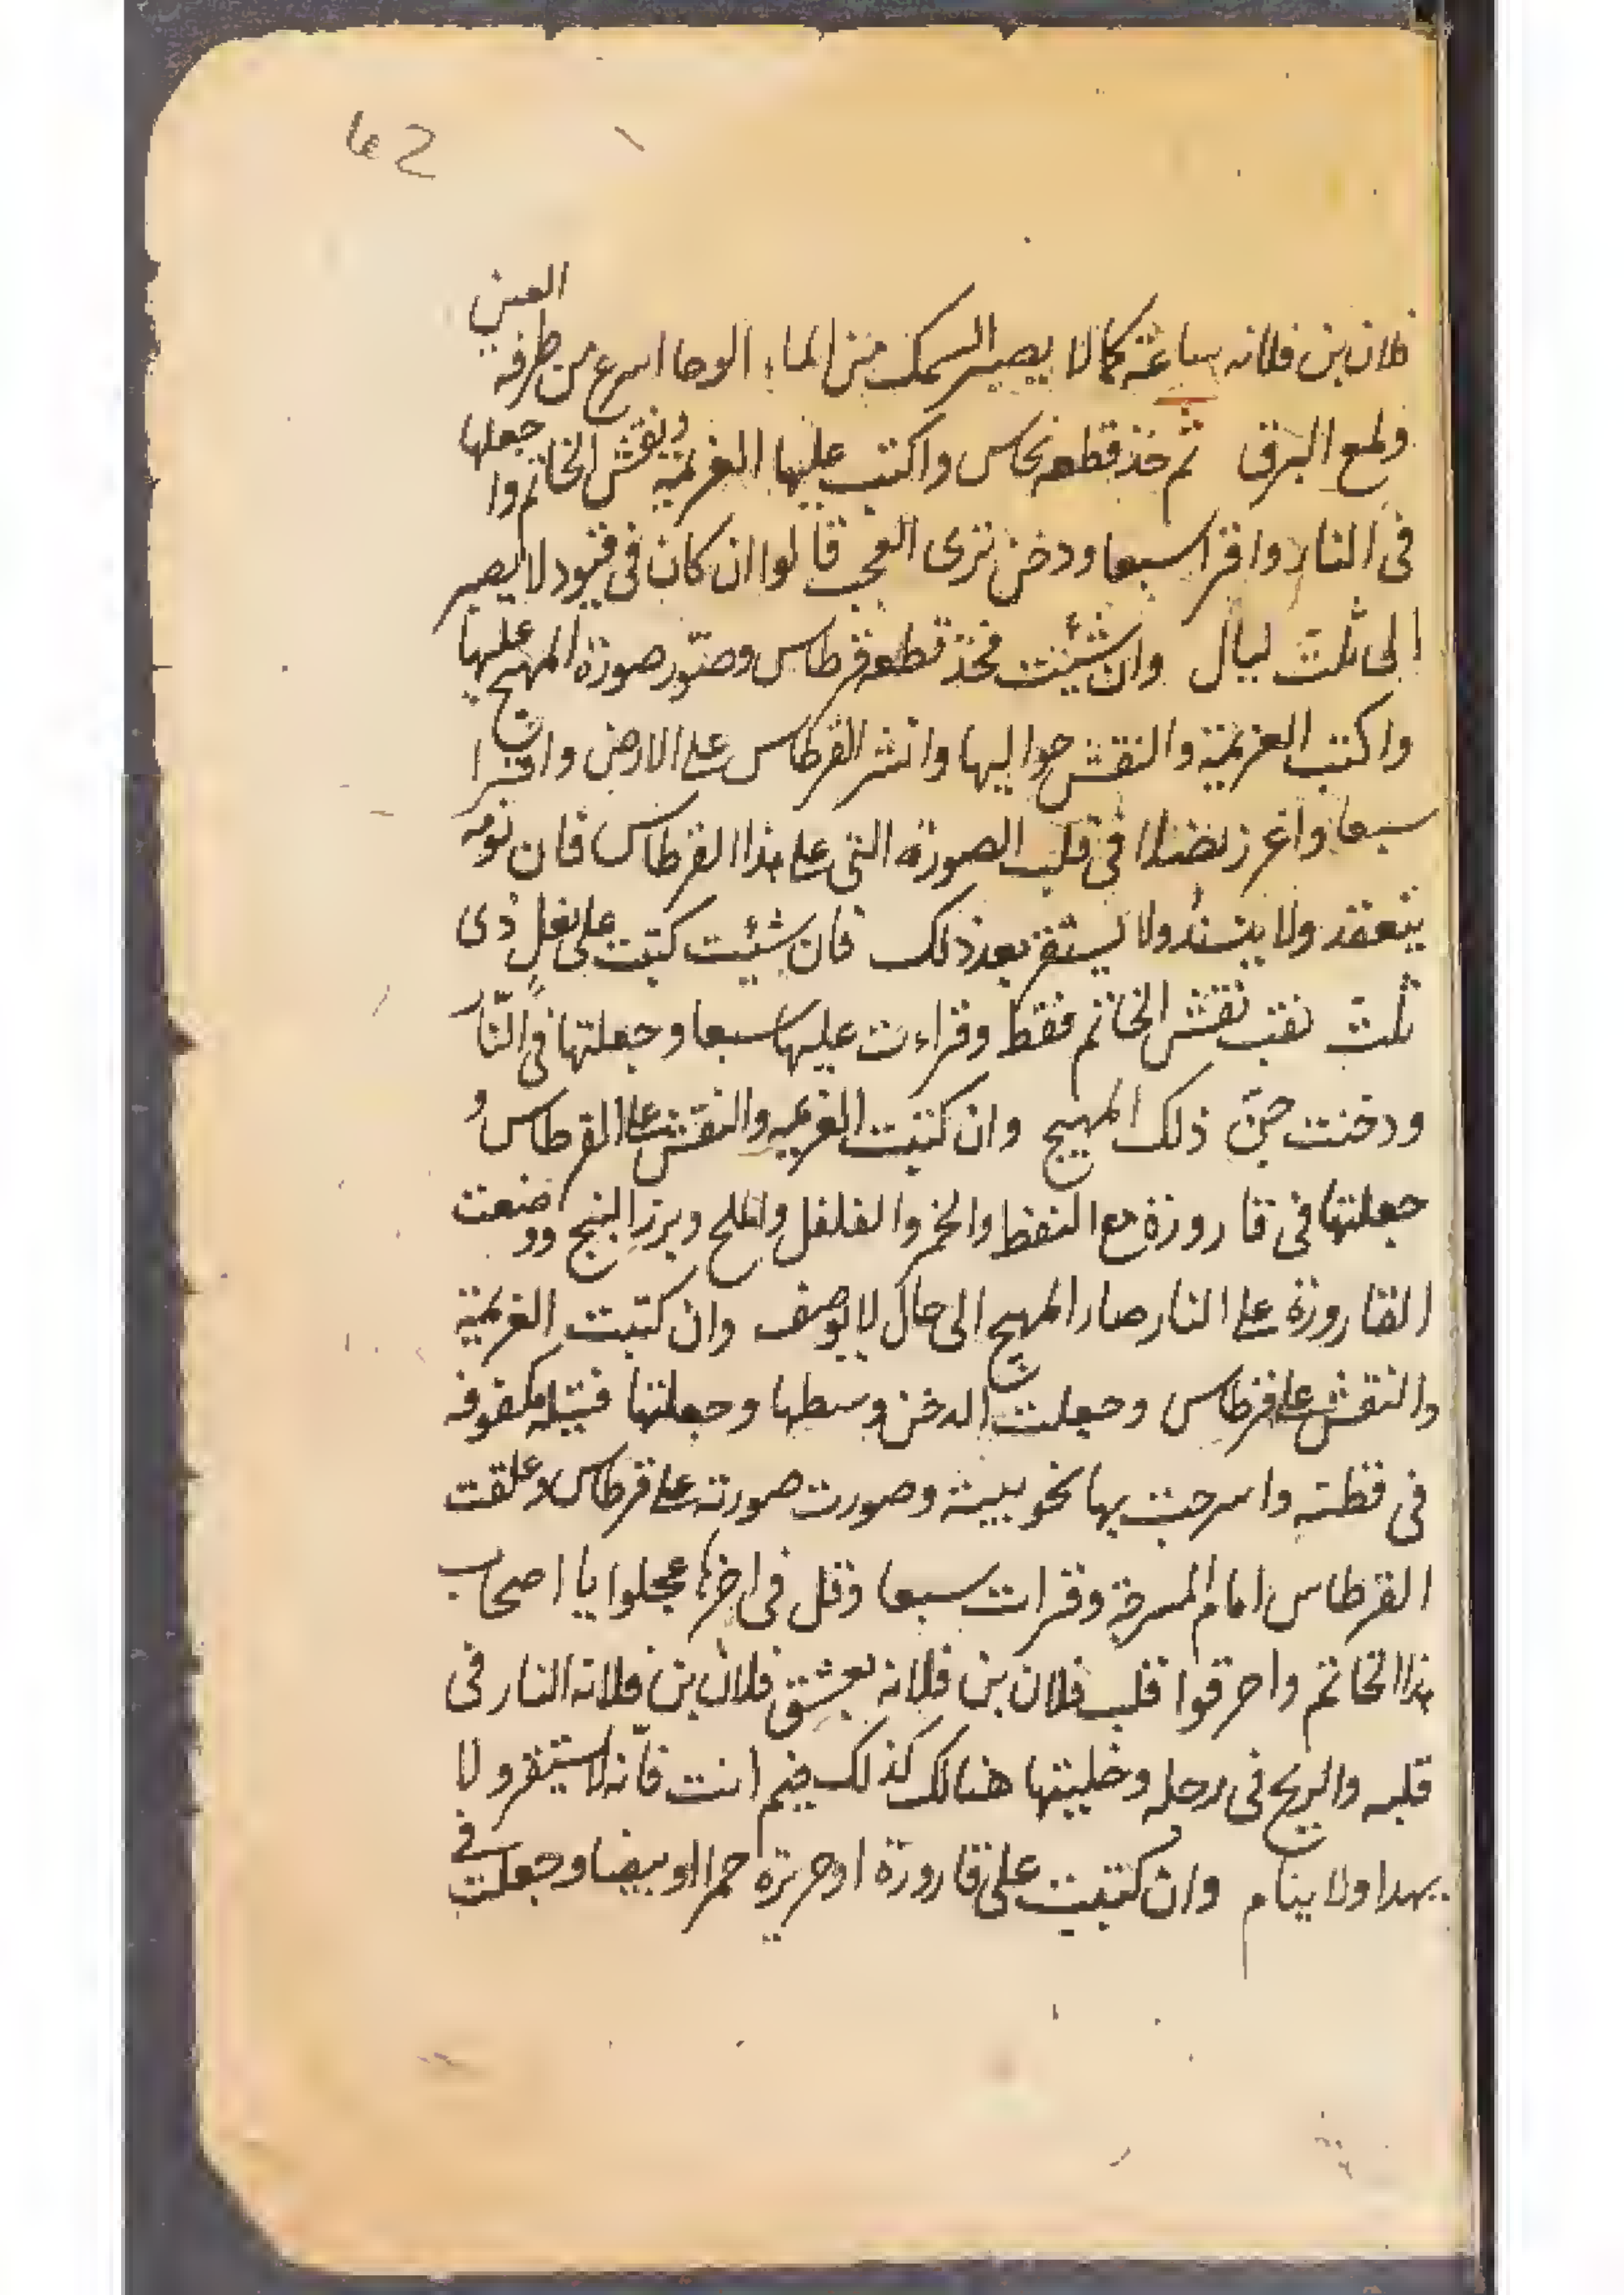 162
فلان بن فلانه ساعة كما لا يصبر السمك من الماء الوحا اسرع من طرفه العين
ولمع البرق ثم خذ قطعه نحاس واكتب عليها العزيمة ونقش الخاتم واجعلها
فى النار واقرا سبعا ودخن ترى العجب قالوا ان كان فى قيود لا يصبر
الى ثلث ليال وان شئت فخذ قطعه قرطاس وصوّر صورة المهيج عليها
واكتب العزيمة والنقش حواليها وانشر القرطاس على الارض واقرا
سبعا واغرز نصلا فى قلب الصورة التى على هذا القرطاس فان نومه
ينعقد ولا يستقر بعد ذلك فان شئت كتبت على نعلٍ ذى
ثلث نقب نقش الخاتم فقط وقراءت عليها سبعا وجعلتها فى النّار
ودخنت جنّ ذلك المهيج وان كتبت العزيمه والنقش على القرطاس و
جعلتها فى قارورة مع النفط والخمر والفلفل والملح وبزر البنج ووضعت
القارورة على النار صار المهيج الى حال لا يوصف وان كتبت العزيمة
والنقش على قرطاس وجعلت الدخن وسطها وجعلتها فتيله ملفوفه
فى قطنه واسرجت بها نحو بيته وصورت صورته على قرطاس وعلقت
القرطاس امام المسرجة وقرات سبعا وقل فى اخرها عجلوا يا اصحاب
هذا الخاتم واحرقوا قلب فلان بن فلانه بعشق فلان بن فلانه النار فى
قلبه والريح فى رجله وخليتها هنالك كذلك فنم انت فانّه لا يستقر ولا
يهدا ولا ينام وان كتبت على قارورة او حريرة حمرا او بيضا وجعلت فى